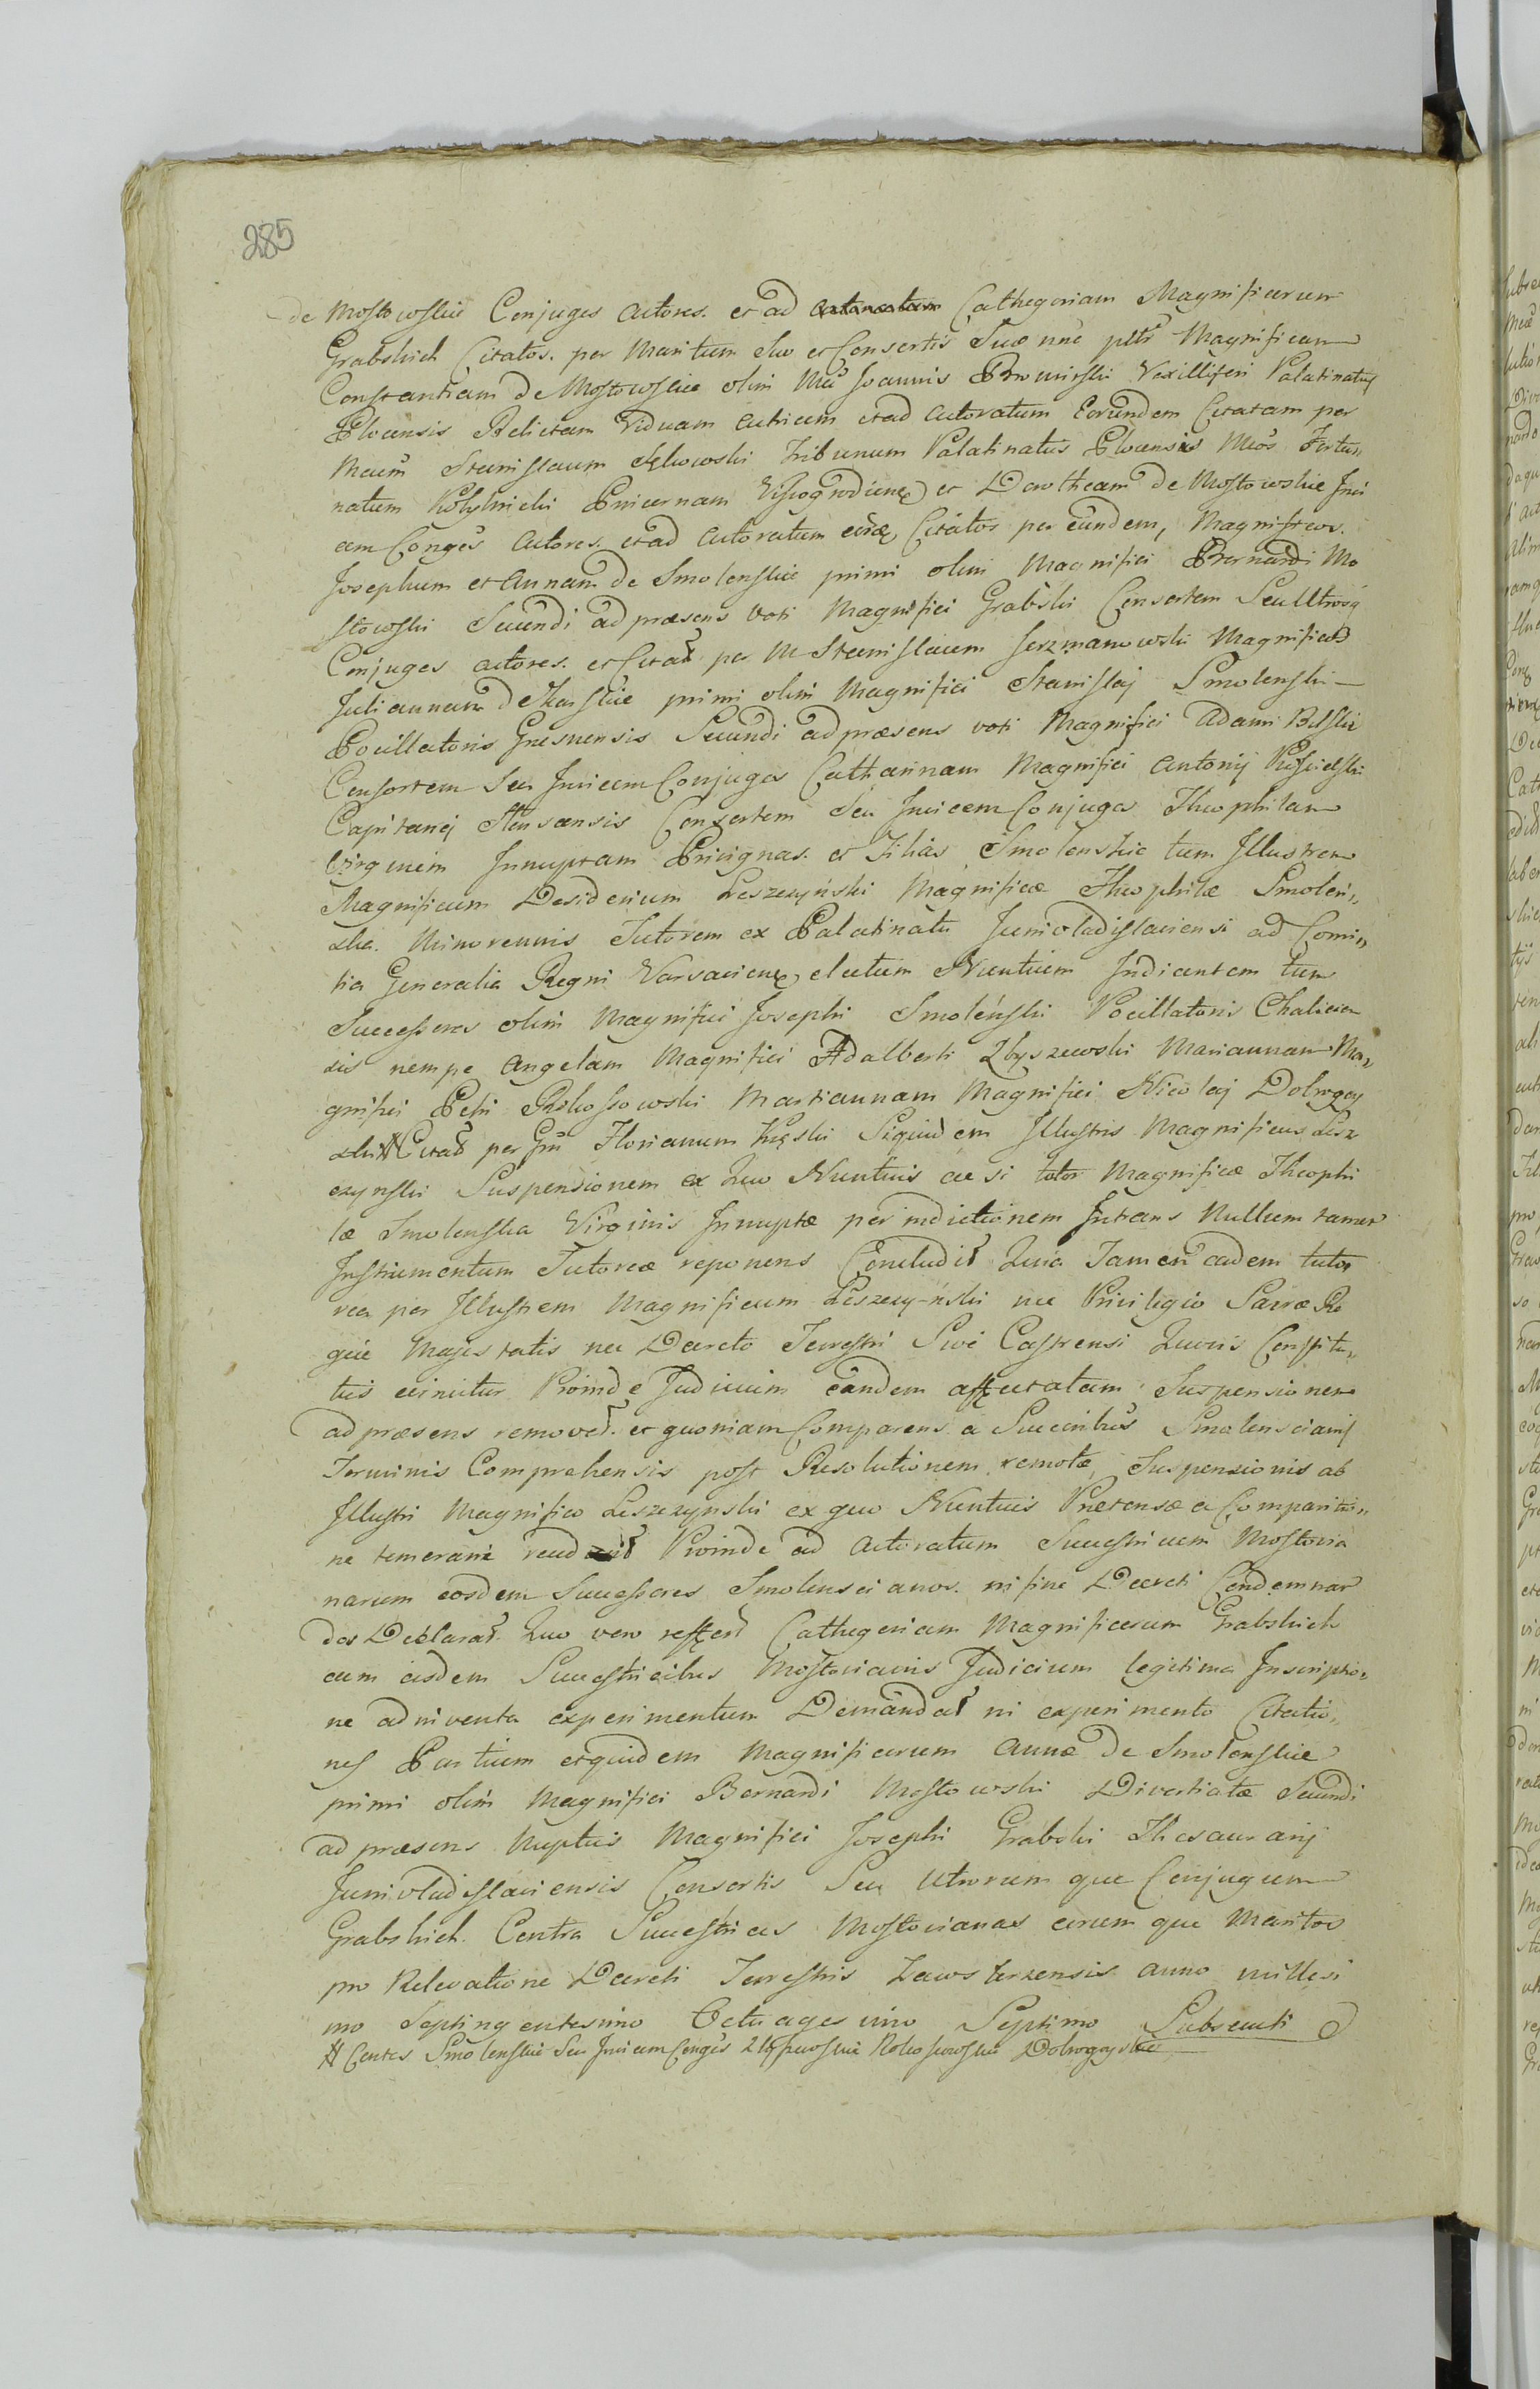 285
de Mostowskie Conjuges Actores. et ad Cathegoriam Magnificorum
Grabskich Citatos. per Maritum Suo et Consortis Suæ nne Magnificam
Constantiam de Mostowskie olim Mci Joannis Bromirski Vexilliferi Palatinatus
Plocensis Relictam Viduam Actricem et ad Actoratum Eorundem Citatam per
Mcum Stanislaum Sękowski Tribunum Palatinatus Plocensis Mcos Fortu„
natum Pincernam et Dorotheam de Mostowskie Invi
cem Conges Actores. et ad Actoratum Citatos per eundem, Magnificos.
Josephum et Annam de Smolenskie primi olim Magnifici Bernardi Mo
stowski Secundi ad præsens voti Magnifici Grabski Consortem Seu Utrosq
Conjuges actores. et Citat per M Stanislaum Jerzmanowski Magnificas
Juliannam de primi olim Magnifici Stanislaj Smolenski
Pocillatoris Gnesnensis Secundi ad præsens voti Magnifici Adami Bilski
Consortem Seu Invicem Conjuges Catharinam Magnifici Antonij
Capitanei Consortem Seu Invicem Conjuges Theophilam
Virginem Innuptam Privignas. et Filias Smolenskie tum Illustrem
Magnificum Desiderium Leszczyński Magnificæ Theophilæ Smoleń„
ska. Minorennis Tutorem ex Palatinatu Juniwladislaviensi ad Comi„
tia Generalia Regni Varsaviens electum Nuntium Indicantem tum
Successores olim Magnifici Josephi Smoleński Pocillatoris
sis nempe Angelam Magnifici Adalberti Zbyszewski Mariannam Ma„
gnifici Petri Rokossowski Martiannam Magnifici Nicolaj Dobrogoy
ski # Citat per Gm Florianum Kęski Siquidem Illustris Magnificus Lesz
czynski Suspensionem ex Quo Nuntius ac si tutor Magnificæ Theophi
læ Smolenska Virginis Innuptæ per indictionem Intrans Nullum tamen
Instrumentum Tutoreæ reponens Concludit Quia Tamen eadem tuto
rea per Illustrem Magnificum Leszczy-ński nec Privilegio Sacræ Re
giæ Majestatis nec Decreto Terrestri Sive Castrensi Quovis Constitu„
tus evincitur Proinde Judicium eandem affectatam Suspensionem
ad præsens removet. et quoniam Comparens a Succribus Smolenscianis
Terminis Comprehensis post Resolutionem remotæ Suspensionis ab
Illustri Magnifico Leszczynski ex quo Nuntius Prætensæ a Comparitio„
ne temerarie Proinde ad Actoratum Successricum Mostovia
narum eosdem Successores Smolenscianos. in fine Decreti Condemnan
dos Declarat. Quo vero Cathegoriam Magnificorum Grabskich
cum iisdem Successricibus Mostovianis Judicium legitima Inscriptio„
ne adinventa experimentum Demandat in experimento Citatio„
nes Partium etquidem Magnificorum Annæ de Smolenskie
primi olim Magnifici Bernardi Mostowski Divortiatæ Secundi
ad præsens Nuptiis Magnifici Josephi Grabski Thesaurarij
Juniwladislaviensis Consortis Seu Utrorum que Conjugum
Grabskich. Contra Successrices Mostovianas earum que Maritos
pro Relevatione Decreti Terrestris anno millesi
mo Septingentesimo Octuagesimo Septimo Subsecuti
# Contes Smolenskie Seu Invicem Conges Rokossowskie Dobrogoyskie